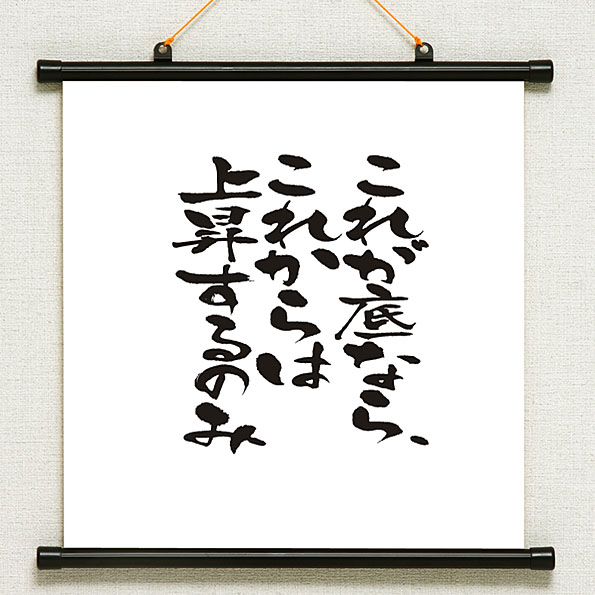 これが底なら、
これからは
上昇するのみ